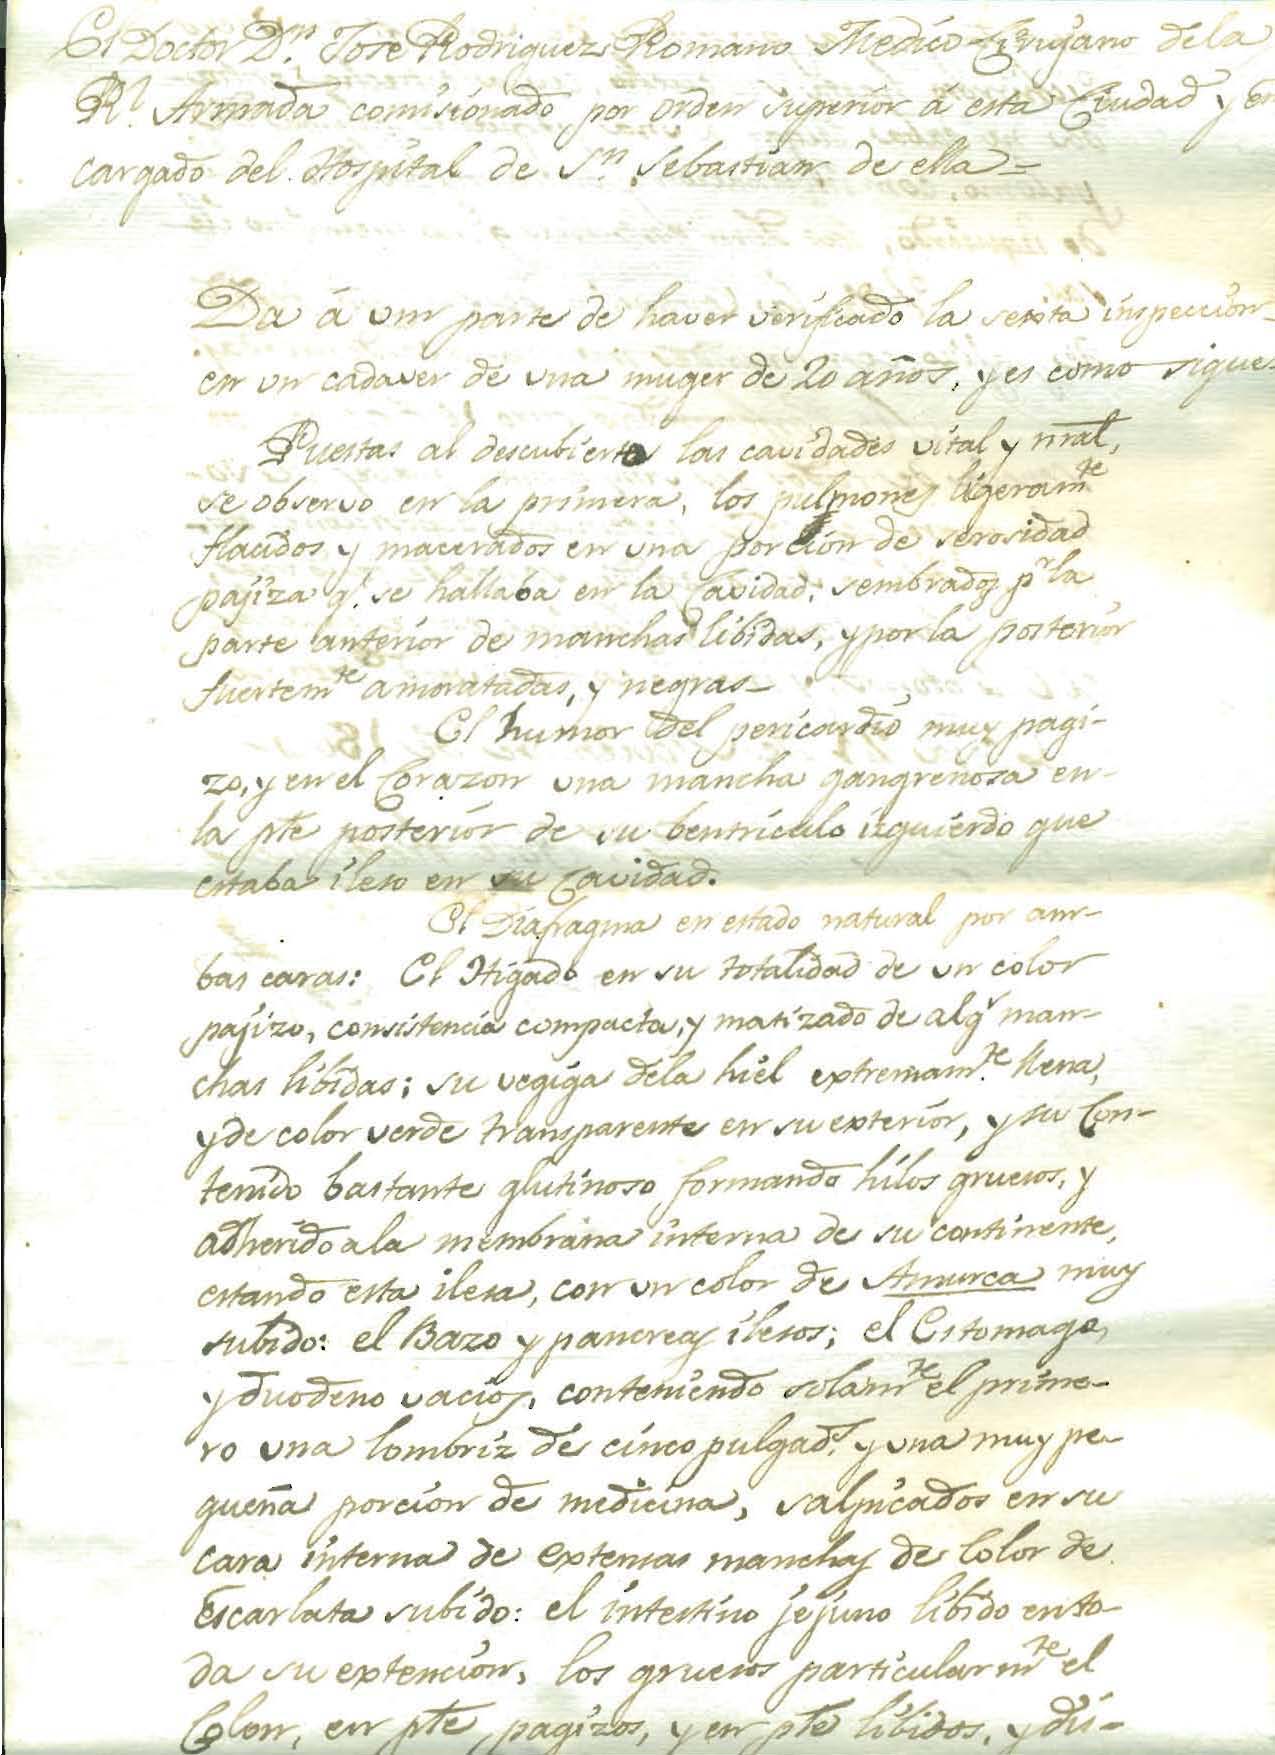 El Doctor Dn. Jose Rodriguez Romano Medico-Cirujano dela
Rl. Armada comisionado por orden superior á esta Ciudad y en
cargado del Hospital de Sn. Sebastian de ella=
Da á vm parte de haver verificado la sexta inspeccion
en un cadaver de una muger de 20 años, y es como sigue
Puestas al descubierto las cavidades vital y nral,
se observo en la primera, los pulmones ligeramte
flacidos y macerados en una porcion de serosidad
pajiza q.e se hallaba en la Cavidad; sembrados pr la
parte anterior de manchas libidas, y por la posterior
fuertemte amoratadas, y negras-
El humor del pericardio muy pagi-
zo, y en el Corazon una mancha gangrenosa en-
la pte posterior de su bentriculo izquierdo que
estaba ileso en su Cavidad.
El Diafragma en estado natural por am-
bas caras: El Higado en su totalidad de un color
pajizo, consistencia compacta, y matizado de algs man-
chas libidas; su vegiga dela hiel extremam.te llena,
y de color verde transparente en su exterior, y su Con-
tenido bastante glutinoso formando hilos gruesos, y
adherido a la membrana interna de su continente,
estando esta ilesa, con un color de Amurca muy
subido: el Bazo y pancreas ilesos; el Estomago,
y duodeno vacios, conteniendo solamte el prime-
ro una lombriz de cinco pulgads. y una muy pe-
queña porcion de medicina, salpicados en su
cara interna de extensas manchas de Color de
Escarlata subido: el intestino jejuno libido en to-
da su extencion, los gruesos particularmte el
Colon, en pte pagizos, y en pte libidos, y dis-